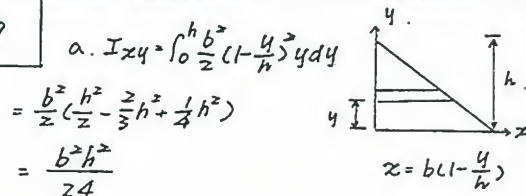 a. Ixy = ∫₀ʰ b²/2 (1-y/h)² y dy
= b²/2 (h²/2 - 2/3 h² + 1/4 h²)
= b²h²/24
y
h
y
x
x = b(1-y/h)